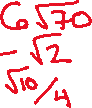 6√70
-√2
√10/4